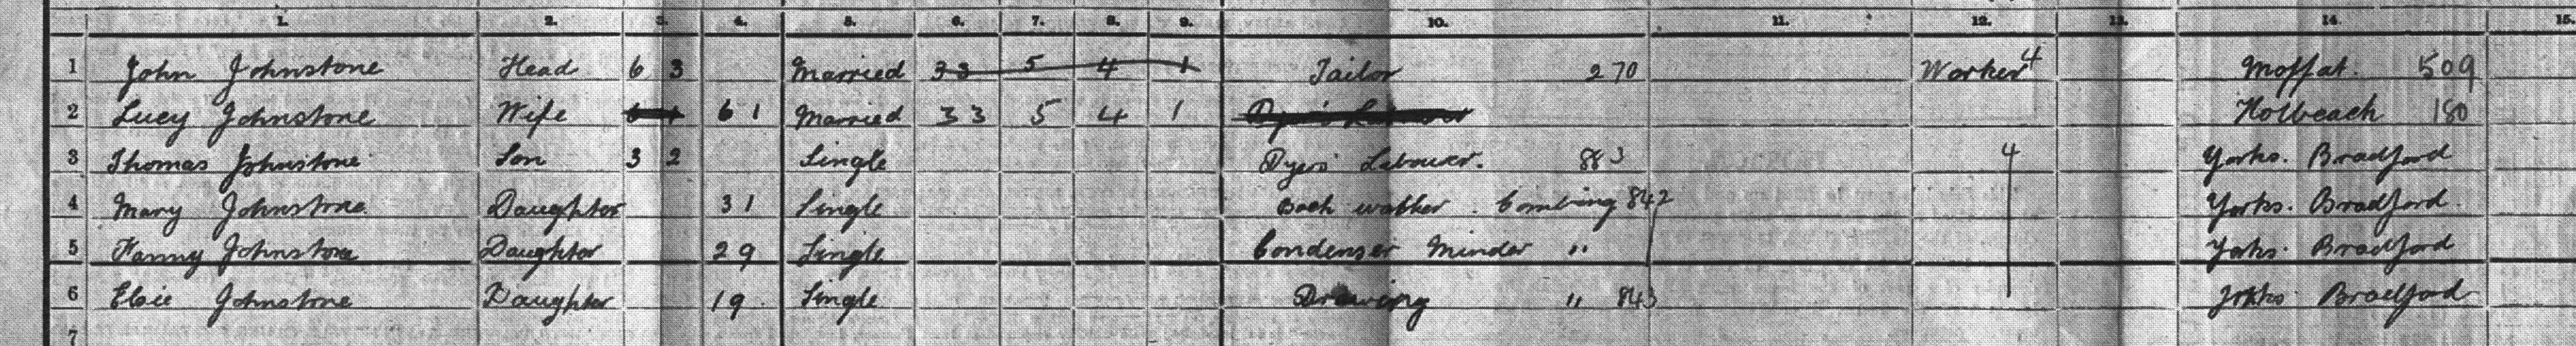 1. 2. 3. 4. 5. 6. 7. 8. 9. 10. 11. 12. 13. 14. 15.
1 John Johnstone Head 63 Married 33 5 4 1 Tailor 270 Worker 4 Moffat. 509
2 Lucy Johnstone Wife 61 Married 33 5 4 1 Dyer's Labourer Holbeach 180
3 Thomas Johnstone Son 32 Single Dyers' Labourer. 883 4 Yorks. Bradford
4 Mary Johnstone Daughter 31 Single washer. Combing 842 Yorks. Bradford.
5 Fanny Johnstone Daughter 29 Single Condenser Minder " Yorks. Bradford
6 Elsie Johnstone Daughter 19. Single Drawing " 843 Yorks. Bradford
7